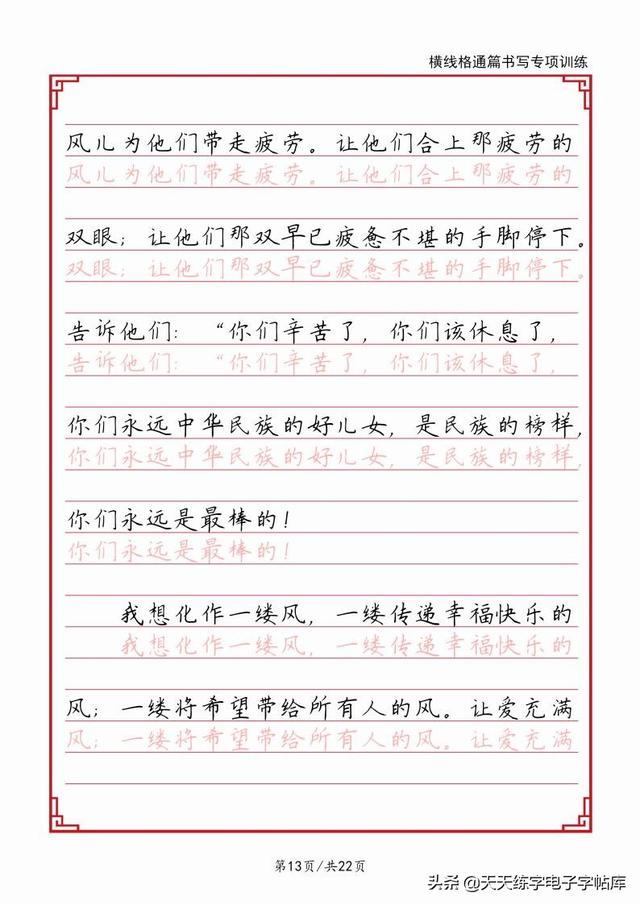 横线格通篇书写专项训练
风儿为他们带走疲劳。让他们合上那疲劳的
风儿为他们带走疲劳。让他们合上那疲劳的
双眼；让他们那双早已疲惫不堪的手脚停下。
双眼；让他们那双早已疲惫不堪的手脚停下。
告诉他们：“你们辛苦了，你们该休息了，
告诉他们：“你们辛苦了，你们该休息了，
你们永远中华民族的好儿女，是民族的榜样，
你们永远中华民族的好儿女，是民族的榜样，
你们永远是最棒的！
你们永远是最棒的！
我想化作一缕风，一缕传递幸福快乐的
我想化作一缕风，一缕传递幸福快乐的
风；一缕将希望带给所有人的风。让爱充满
风；一缕将希望带给所有人的风。让爱充满
第13页/共22页
头条 @天天练字电子字帖库